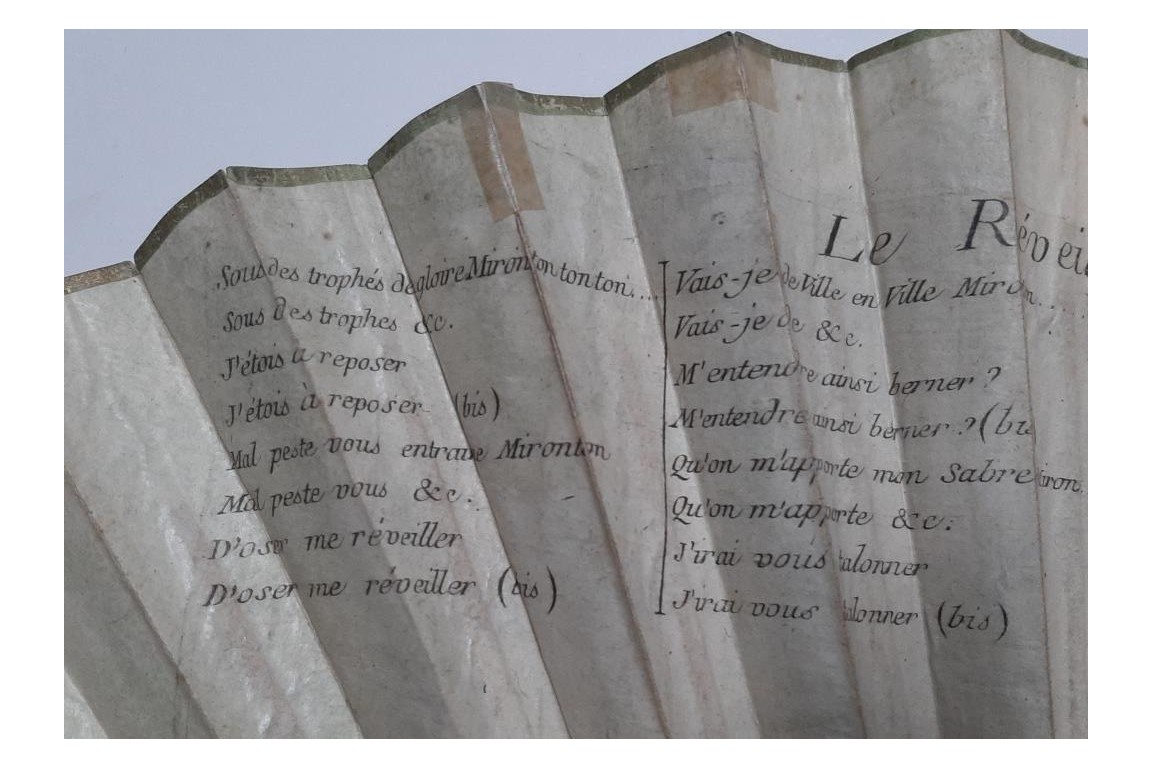 Le Révei
Sous des trophés de gloire Mironton ton ton....
Sous des trophes &c.
J'étois à reposer
J'étois à reposer (bis)
Mal peste vous entraine Mironton
Mal peste vous &c.
D'oser me réveiller
D'oser me réveiller (bis)
Vais-je de Ville en Ville Miron...
Vais-je de &c.
M'entendre ainsi berner ?
M'entendre ainsi berner ? (bis
Qu'on m'apporte mon Sabre Miron.
Qu'on m'apporte &c.
J'irai vous talonner
J'irai vous talonner (bis)